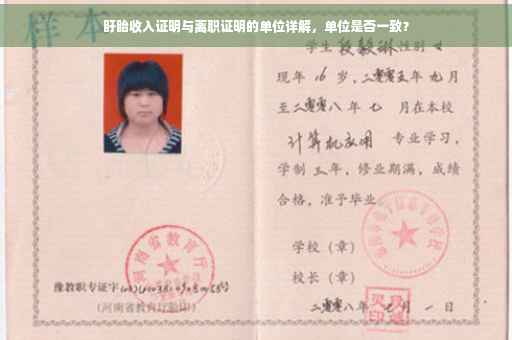 盱眙收入证明与离职证明的单位详解，单位是否一致？
样本
学生段毅琳性别女
现年16岁，二零零五年九月
至二零零八年七月在本校
计算机应用 专业学习，
学制三年，修业期满，成绩
合格，准予毕业。
学校（章）
校长（章）
二零零八年七月一日
河南省教育厅
豫教职专证字
（河南省教育厅验印）